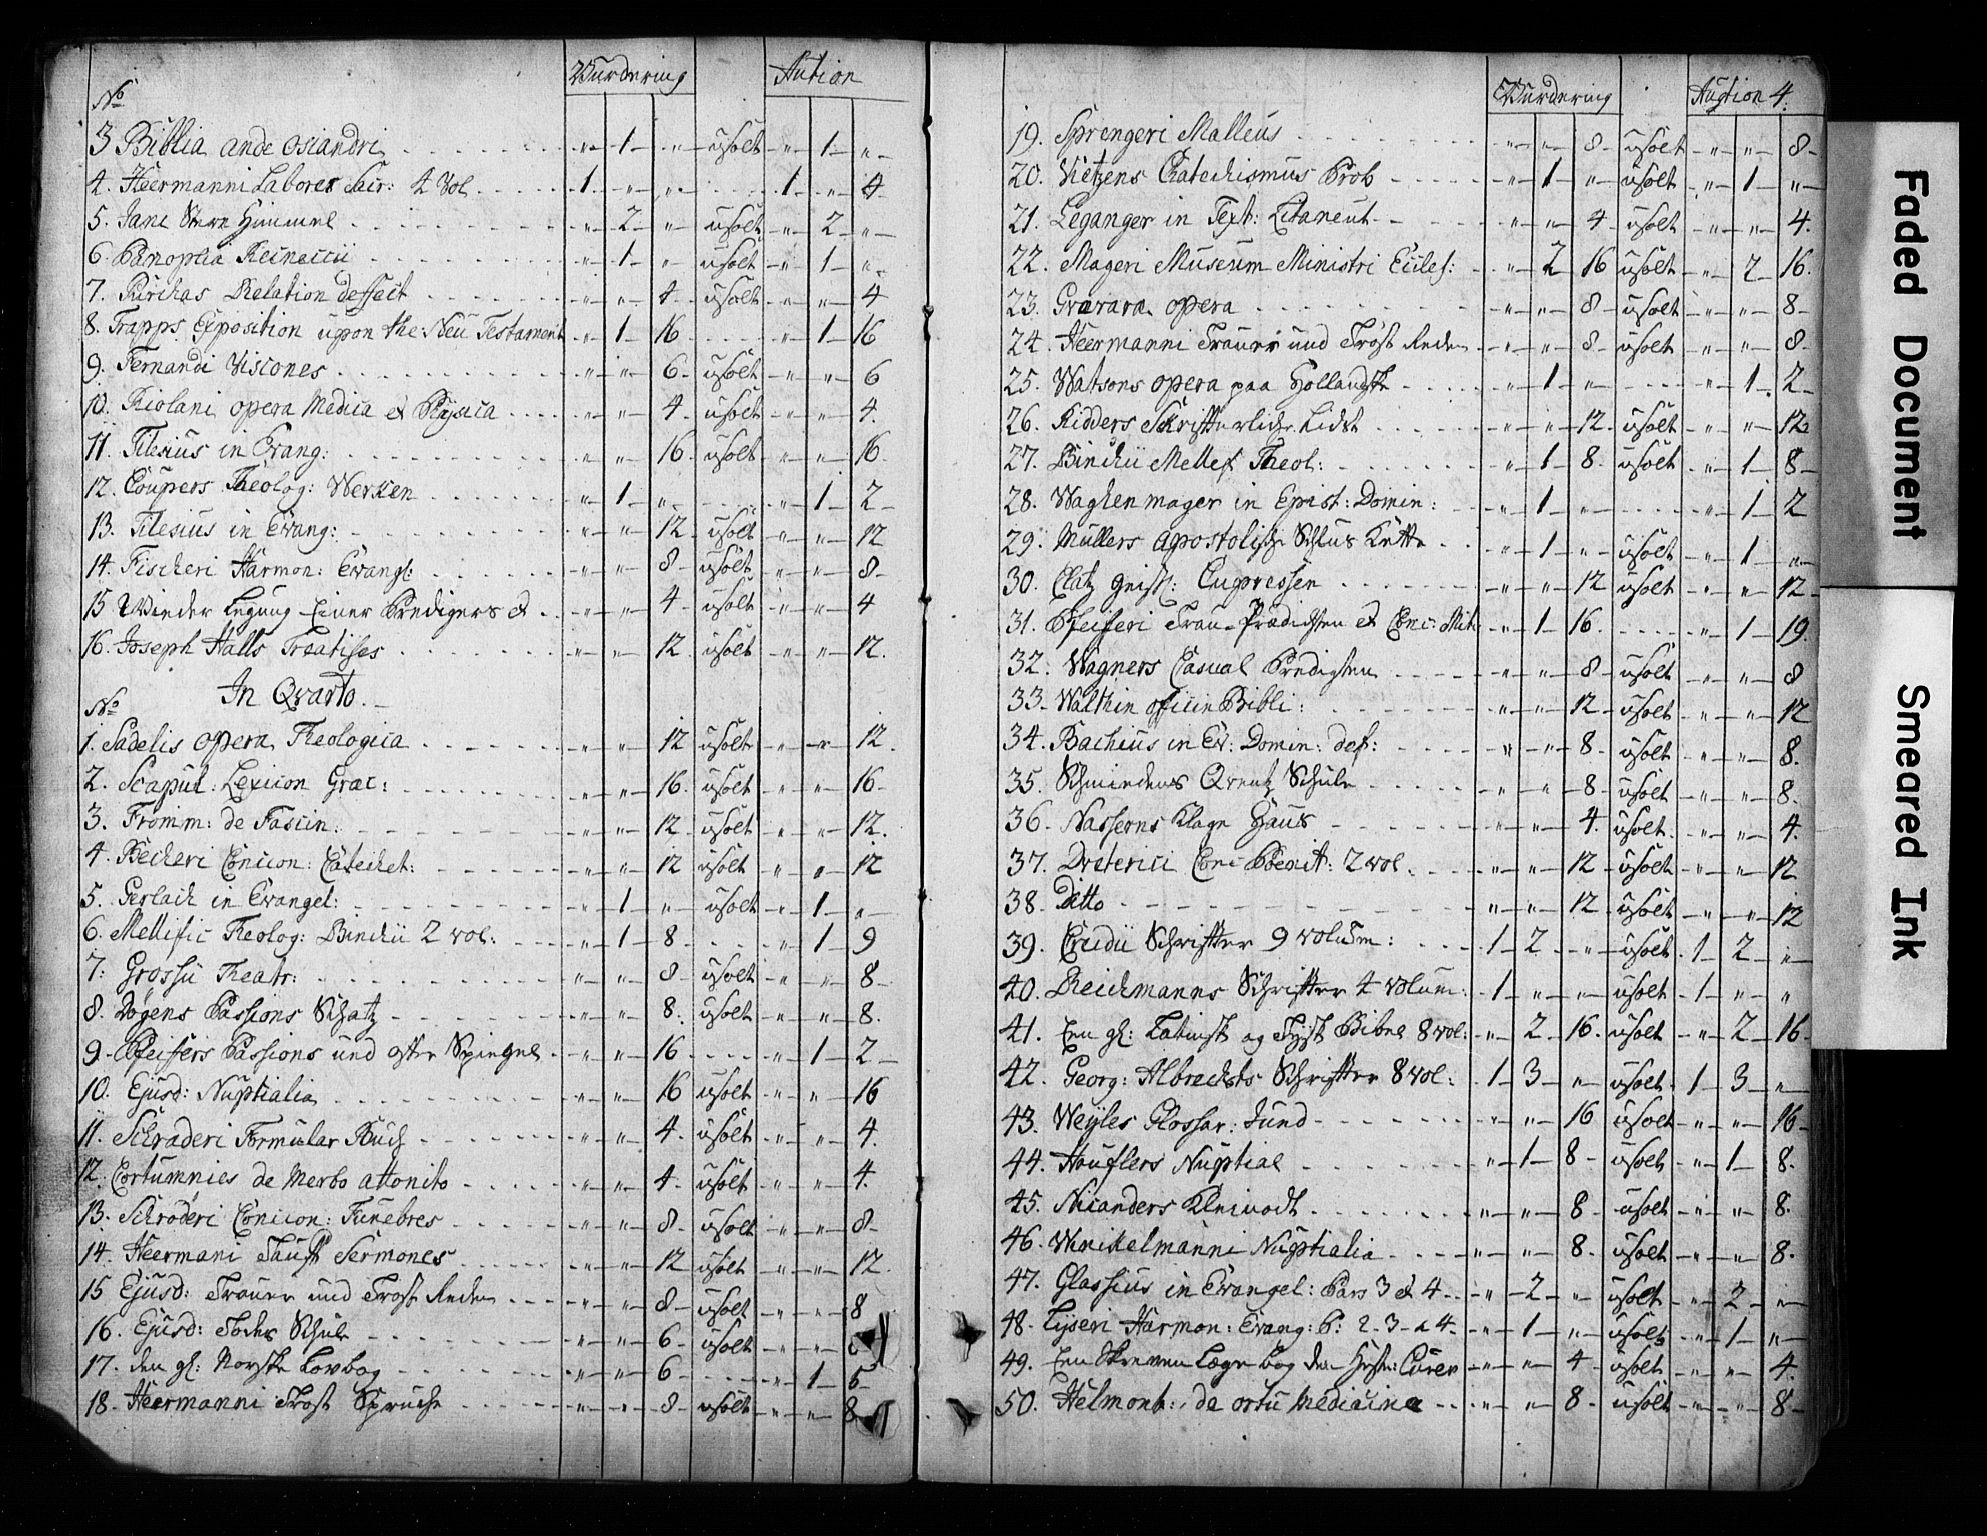 No Vurdering Aution
3 Biblia ande osiandri „ 1 „ usolt „ 1 „
4. Heermanni Labores Sacr: 4 Vol 1. „ „ 1 „ 4
5. Jane Stern Himmel „ 2 „ usolt „ 2 „
6. Panoplia Reineccii „ 1 „ usolt „ 1 „
7. Purchas Relation deffect „ „ 4 usolt „ „ 4
8. Trapps Exposition upon the Neu Testament „ 1 16 „ 1 16
9. Fernandi Visiones „ „ 6 usolt „ „ 6
10. Riolani opera Medica et Physica „ „ 4 usolt „ „ 4.
11. Tilesius in Evang: „ „ 16 usolt „ „ 16
12. Coupers Theolog: Werken „ 1 „ „ 1 2
13. Tilesius in Evang: „ „ 12 usolt „ „ 12
14. Fischeri Harmon: Evangl: „ „ 8 usolt „ „ 8
15 Wieder Legung Einer Predigers et „ „ 4 usolt „ „ 4
16. Joseph Halls Treatises „ „ 12 usolt „ „ 12.
In Qvarto.
No
1. Sadelis opera Theologica „ „ 12 usolt „ „ 12.
2. Scapul: Lexicon Græc: „ „ 16 usolt „ „ 16
3. Fromm: de Fascin: „ „ 12 usolt „ „ 12.
4. Becheri Concion: Catechet: „ „ 12 usolt „ „ 12
5. Gerlach in Evangel: „ 1 „ usolt „ 1 „
6. Mellific Theolog: Binchii 2 vol: „ 1 8 „ 1 9
7: Grossii Theatr: „ „ 8 usolt „ „ 8
8. Døgens Passions Schatz „ „ 8. usolt „ „ 8.
9. Pfeiffers Passions und oster Spiegel „ „ 16 „ 1 2
10. Ejusd: Nuptialia „ „ 16 usolt „ „ 16
11. Schraderi Formular Buch „ „ 4 usolt „ „ 4.
12. Cortumnies de Merbo attonito „ „ 4 usolt „ „ 4.
13. Schroderi Concion: Funebres „ „ 8 usolt „ „ 8
14. Heermani Taust Sermones „ „ 12 usolt „ „ 12.
15 Ejusd: Trauer und Trost Reden „ „ 8 usolt „ „ 8
16. Ejusd: Todes Schul „ „ 6 usolt „ „
17. den gl: Norske Lovbog „ „ 6 „ 1 5
18. Heermanni Trost Spruche „ „ 8 usolt „ „ 8
Vurdering Auction 4.
19. Sprengeri Malleus „ „ 8 usolt „ „ 8
20. Vietzens Catechismus Prob „ 1 „ usolt „ 1 „
21. Leganger in Text: Litaneut „ „ 4 usolt „ „ 4.
22. Mageri Museum Ministri Eccles: „ 2 16 usolt „ 2 16.
23. Gvarara opera „ „ 8 usolt „ „ 8
24. Heermanni Trauer und Trost Reden „ „ 8 usolt „ „ 8
25. Watsons opera paa Hollandsk „ 1 „ „ 1 2
26. Ridders Skrifterliche Lidt „ „ 12 usolt „ „ 12
27. Binchii Mellef Theol: „ 1 8 usolt „ 1 8
28. Waghenmager in Epist: Domin: „ 1 „ „ 1 2
29. Mullers Apostolische Schlus Kette „ 1 „ usolt „ 1 „
30. Clatz Geistl: Cupressen „ „ 12 usolt „ „ 12
31. Pfeifferi Trau-Prædichten et Conc: Mit: „ 1 16. „ 1 19.
32. Wagners Casual Predigten „ „ 8 usolt „ „ 8
33. Walthin oficin Bibli: „ „ 12 usolt „ „ 12
34. Bachius in Ev: Domin: def: „ „ 8 usolt „ „ 8.
35. Schmiedens Qreutz Schule „ „ 8 usolt „ „ 8.
36. Nasserns Klage Haus „ „ 4. usolt „ „ 4.
37. Dieterici Conc Poenit: 2 vol. „ „ 12 usolt „ „ 12
38. Ditto „ „ 12 usolt „ „ 12
39. Crudii Schrifter 9 volum: 1 2 „ usolt 1 2 „
40. Reichmanns Schrifter 4 volum: 1 „ „ usolt 1 „ „
41. Een gl: Latinsk og Tysk Bibel 8 vol: „ 2 16. usolt „ 2 16
42. Georg: Albrechts Schrifter 8 vol: 1 3 „ usolt 1 3 „
43. Weyles Glossar: Jund „ „ 16 usolt „ „ 16
44. Houflers Nuptial „ 1 8 usolt „ 1 8.
45. Nicanders Kleinodt „ „ 8 usolt „ „ 8.
46. Winckelmanni Nuptialia „ „ 8. usolt „ „ 8.
47. Glassius in Evangel: Pars 3 et 4 „ 2 „ usolt „ 2 „
48. Lyseri Harmon: Evang: P: 2-3-a 4 „ 1 „ usolt „ 1 „
49. Een Skreven Læge bog den Heste: Curer „ „ 4 usolt „ „ 4.
50. Helmont: de ortu Medicina „ „ 8 usolt „ „ 8
Faded Document
Smeared Ink